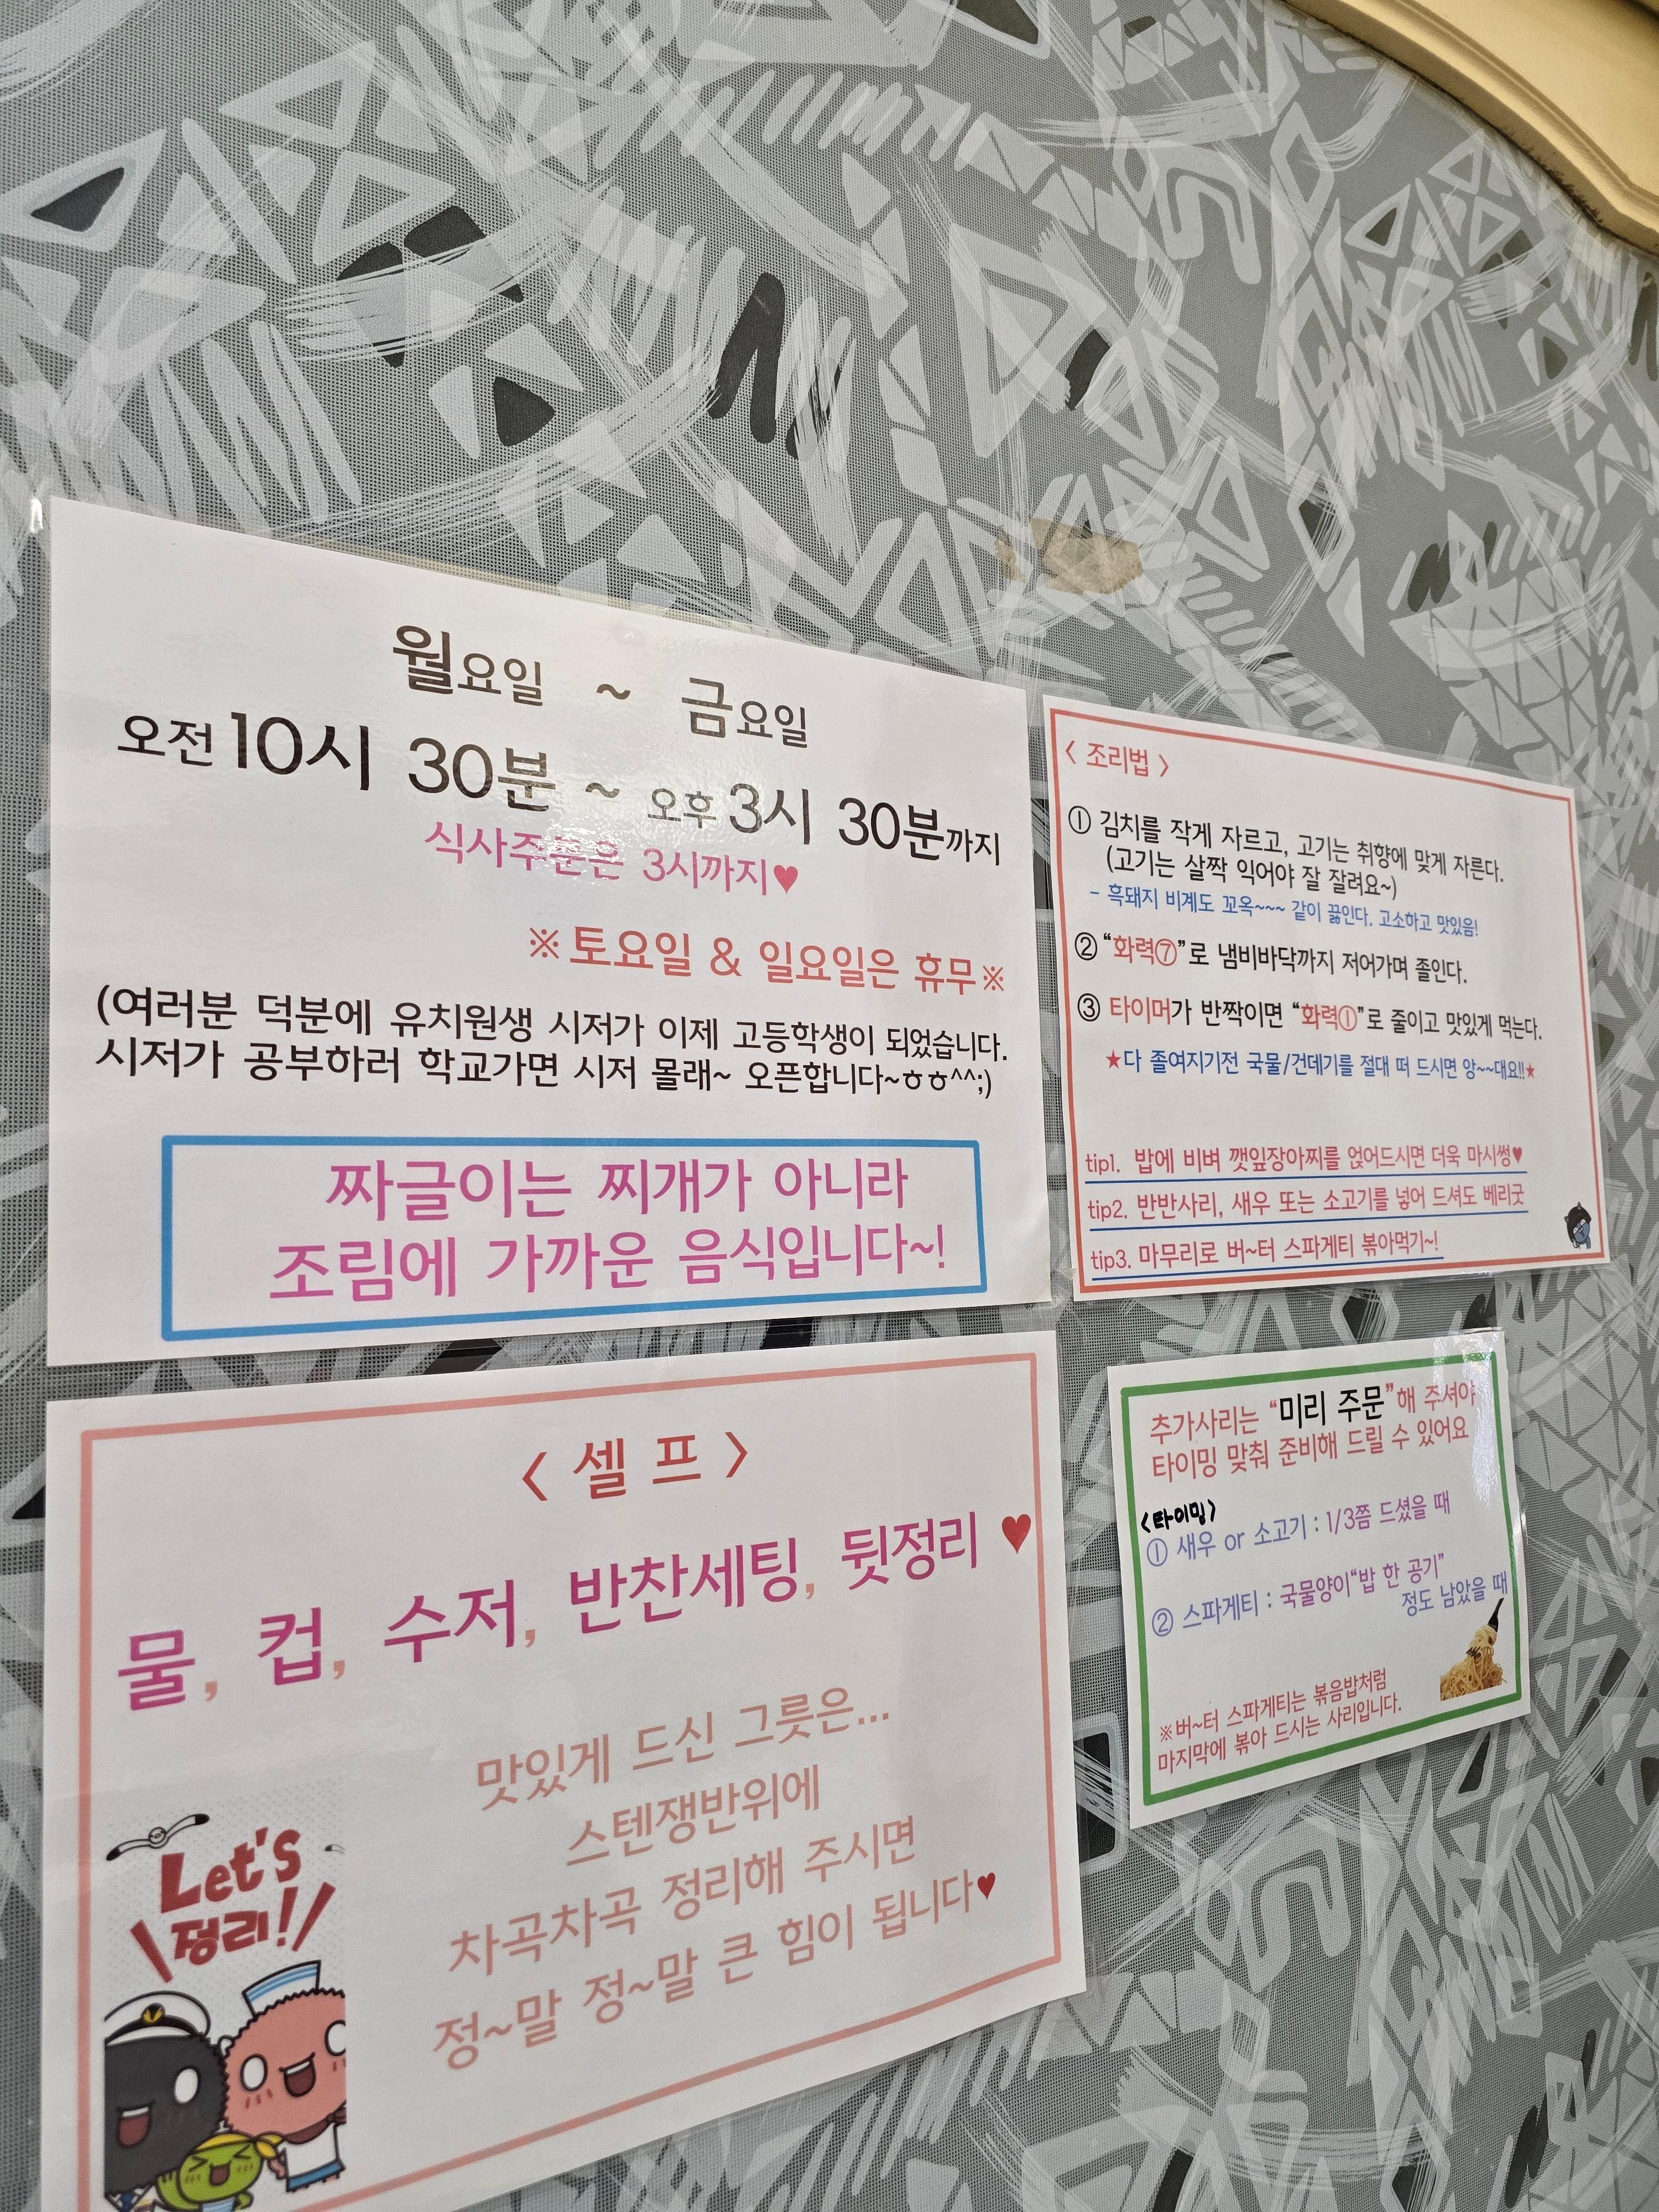 월요일 ~ 금요일
오전 10시 30분 ~ 오후 3시 30분까지
식사주문은 3시까지♥
※토요일 & 일요일은 휴무※
(여러분 덕분에 유치원생 시저가 이제 고등학생이 되었습니다.
시저가 공부하러 학교가면 시저 몰래~ 오픈합니다~ㅎㅎ^^;)
짜글이는 찌개가 아니라
조림에 가까운 음식입니다~!
< 조리법 >
① 김치를 작게 자르고, 고기는 취향에 맞게 자른다.
(고기는 살짝 익어야 잘 잘려요~)
- 흑돼지 비계도 꼬옥~~~ 같이 끓인다. 고소하고 맛있음!
② “화력⑦”로 냄비바닥까지 저어가며 졸인다.
③ 타이머가 반짝이면 “화력①”로 줄이고 맛있게 먹는다.
★다 졸여지기전 국물/건데기를 절대 떠 드시면 앙~~대요!!★
tip1. 밥에 비벼 깻잎장아찌를 얹어드시면 더욱 마시썽♥
tip2. 반반사리, 새우 또는 소고기를 넣어 드셔도 베리굿
tip3. 마무리로 버~터 스파게티 볶아먹기~!
< 셀 프 >
물, 컵, 수저, 반찬세팅, 뒷정리 ♥
맛있게 드신 그릇은...
스텐쟁반위에
차곡차곡 정리해 주시면
정~말 정~말 큰 힘이 됩니다♥
Let's
정리!
추가사리는 “미리 주문”해 주셔야
타이밍 맞춰 준비해 드릴 수 있어요
<타이밍>
① 새우 or 소고기 : 1/3쯤 드셨을 때
② 스파게티 : 국물양이“밥 한 공기”
정도 남았을 때
※버~터 스파게티는 볶음밥처럼
마지막에 볶아 드시는 사리입니다.